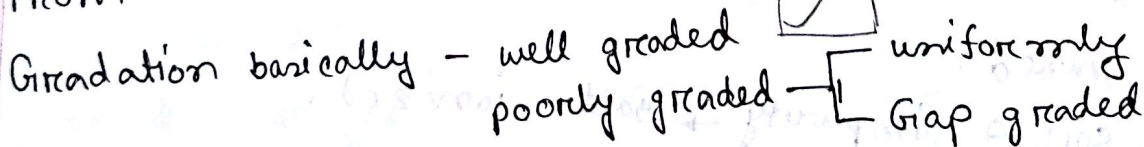 Gradation basically - well graded
poorly graded - uniformly
Gap graded